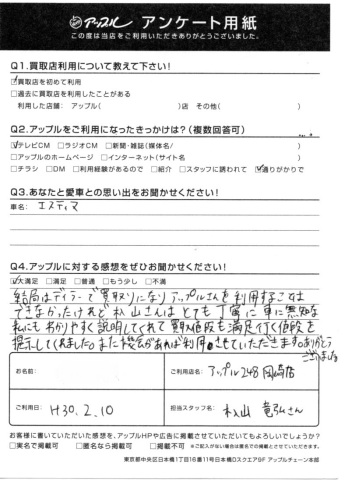 アップル アンケート用紙
この度は当店をご利用いただきありがとうございました。
Q1.買取店利用について教えて下さい!
☑買取店を初めて利用
□過去に買取店を利用したことがある
利用した店舗: アップル( )店 その他( )
Q2.アップルをご利用になったきっかけは?(複数回答可)
☑テレビCM □ラジオCM □新聞・雑誌(媒体名/ )
□アップルのホームページ □インターネット(サイト名 )
□チラシ □DM □利用経験があるので □紹介 □スタッフに誘われて ☑通りがかりで
Q3.あなたと愛車との思い出をお聞かせください!
車名: エスティマ
Q4.アップルに対する感想をぜひお聞かせください!
☑大満足 □満足 □普通 □もう少し □不満
結局はディラーで買取りになりアップルさんを利用することは
できなかったけれど 松山さんはとても丁寧に車に無知な
私にもわかりやすく説明してくれて買取値段も満足行く値段を
提示してくれました。また機会があれば利用させていただきます。ありがとう
ございました
お名前:
ご利用店名: アップル248岡崎店
ご利用日: H30.2.10
担当スタッフ名: 松山 竜弘さん
お客様に書いていただいた感想を、アップルHPや広告に掲載させていただいてもよろしいでしょうか?
□実名で掲載可 □匿名なら掲載可 □掲載不可 ※ご記入がない場合は匿名での掲載とさせていただきます。
東京都中央区日本橋1丁目16番11号日本橋DスクエアGF アップルチェーン本部